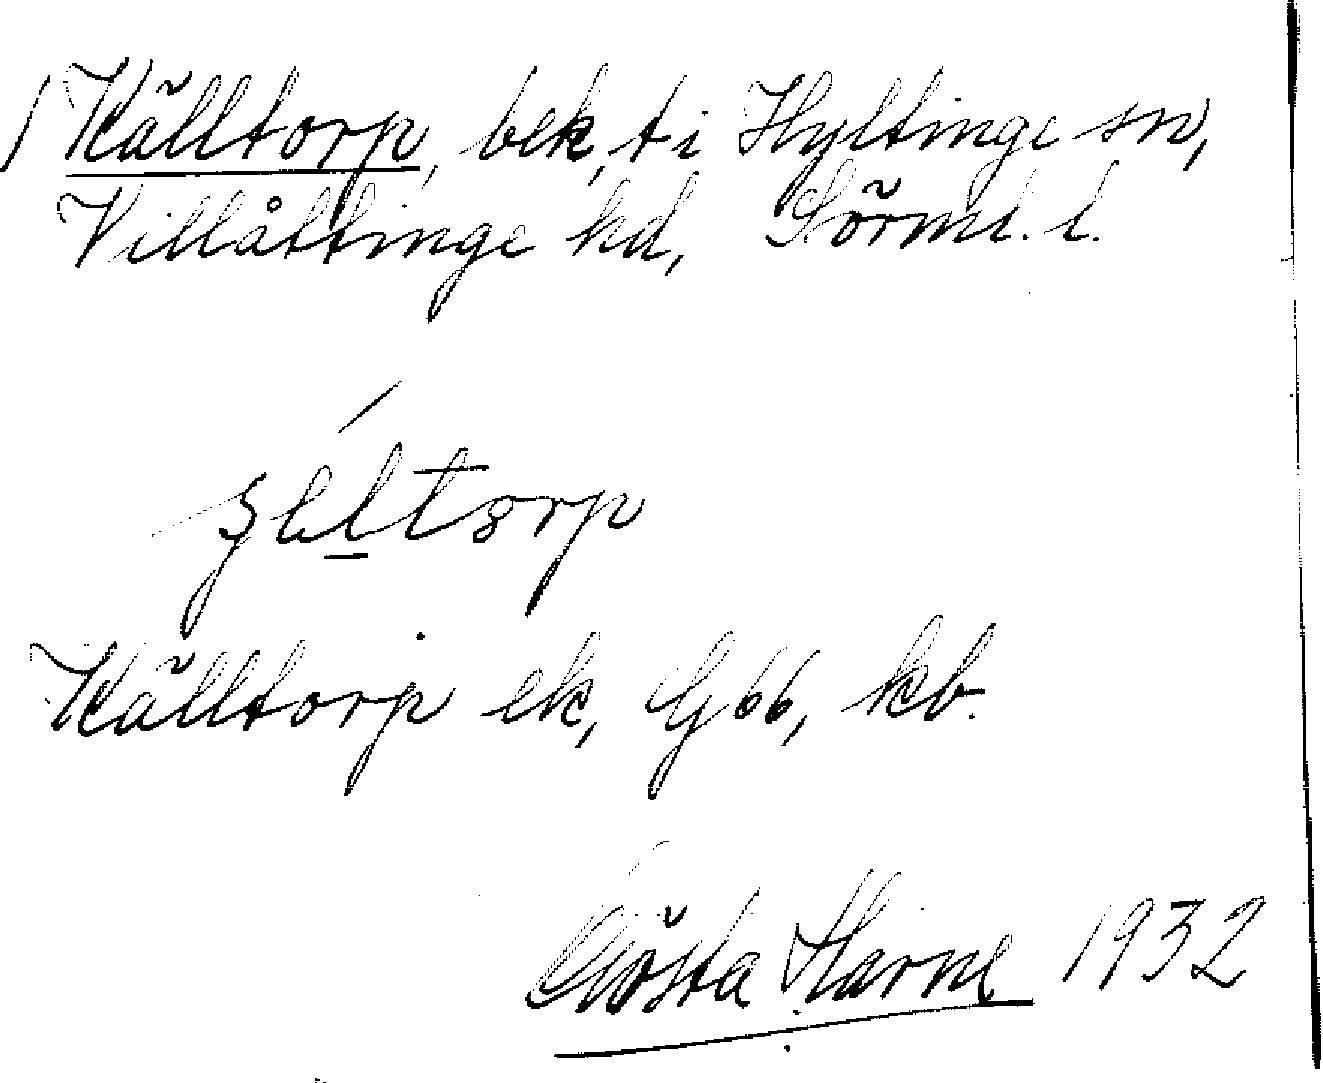 Källtorp, bek, ti Hyltinge sn,
Villåttinge hd, Sörml. l.
Källtorp ek, G66, kb.
Gösta Harne 1932